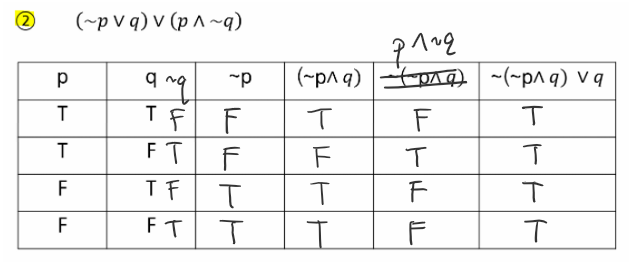 ② (~p ∨ q) ∨ (p ∧ ~q)
p ∧ ~q
p q ~q ~p (~p∧ q) ~(~p∧ q) ~(~p∧ q) ∨ q
T T F F T F T
T F T F F T T
F T F T T F T
F F T T T F T